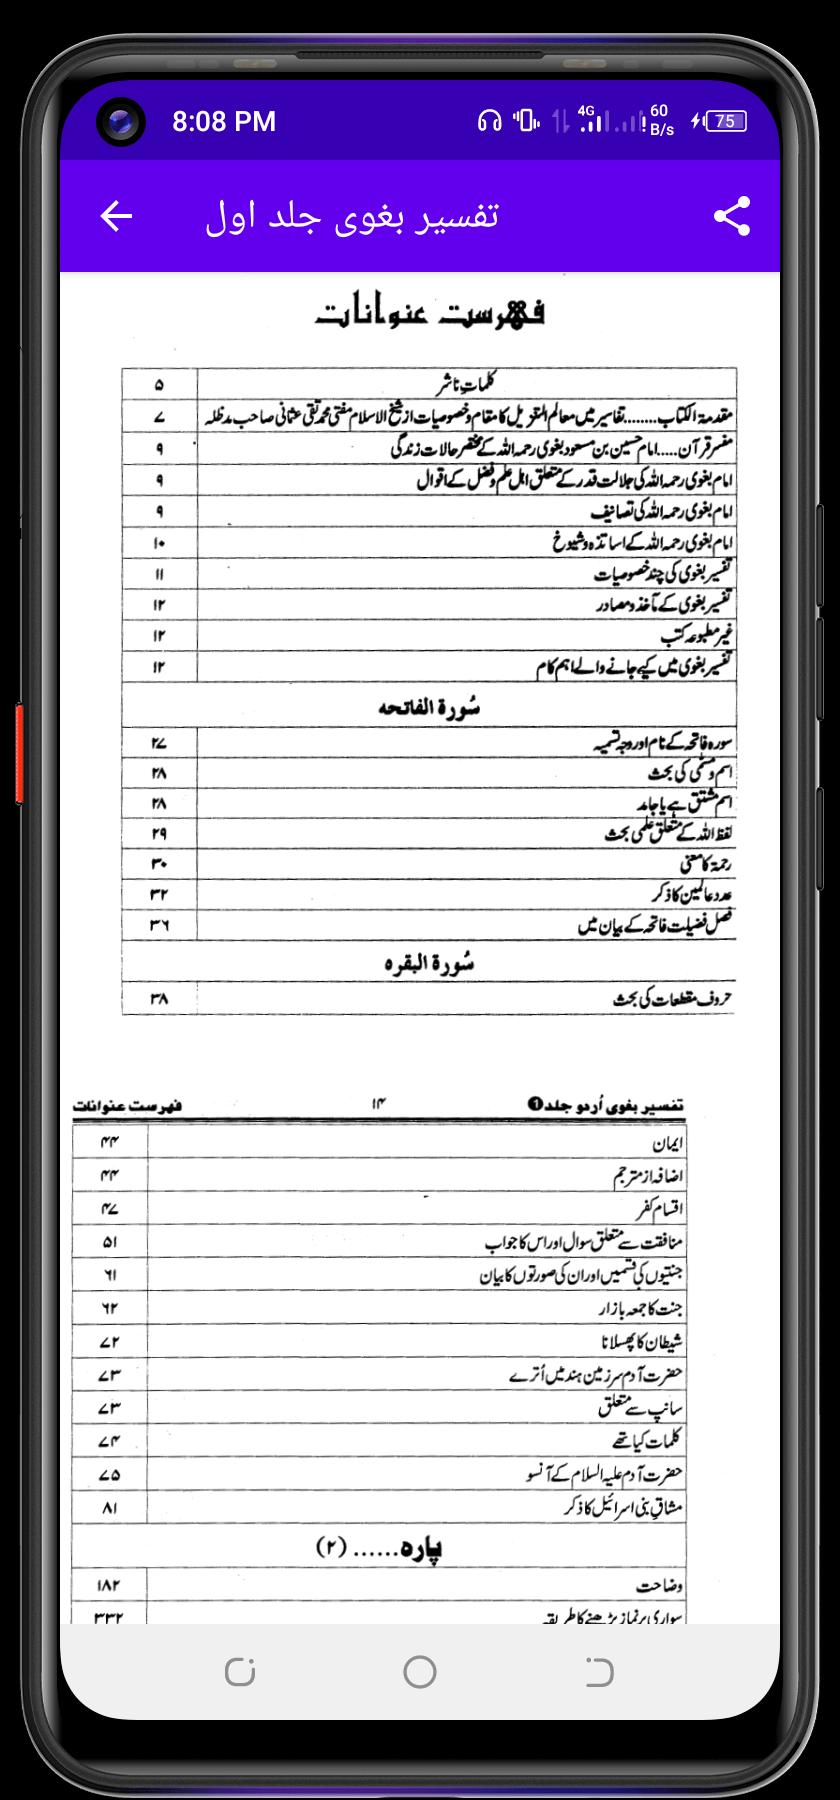 8:08 PM
4G
60 B/s
75
تفسیر بغوی جلد اول
فہرست عنوانات
کلمات ناشر ۵
مقدمۃ الکتاب........تفاسیر میں معالم التنزیل کا مقام وخصوصیات از شیخ الاسلام مفتی محمد تقی عثمانی صاحب مدظلہ ۷
مفسر قرآن.....امام حسین بن مسعود بغوی رحمہ اللہ کے مختصر حالات زندگی ۹
امام بغوی رحمہ اللہ کی جلالت قدر کے متعلق اہل علم وفضل کے اقوال ۹
امام بغوی رحمہ اللہ کی تصانیف ۹
امام بغوی رحمہ اللہ کے اساتذہ وشیوخ ۱۰
تفسیر بغوی کی چند خصوصیات ۱۱
تفسیر بغوی کے مآخذ ومصادر ۱۲
غیر مطبوعہ کتب ۱۲
تفسیر بغوی میں کیے جانے والے اہم کام ۱۲
سُورۃ الفاتحه
سورہ فاتحہ کے نام اور وجہ تسمیہ ۲۷
اسم ومسمّٰی کی بحث ۲۸
اسم مشتق ہے یا جامد ۲۸
لفظ اللہ کے متعلق علمی بحث ۲۹
رحمۃ کا معنی ۳۰
عدد عالمین کا ذکر ۳۲
فصل فضیلت فاتحہ کے بیان میں ۳۶
سُورۃ البقرہ
حروف مقطعات کی بحث ۳۸
تفسیر بغوی اُردو جلد ۱ ۱۴ فہرست عنوانات
ایمان ۴۴
اضافہ از مترجم ۴۴
اقسام کفر ۴۷
منافقت سے متعلق سوال اور اس کا جواب ۵۱
جنتیوں کی قسمیں اور ان کی صورتوں کا بیان ۶۱
جنت کا جمعہ بازار ۶۲
شیطان کا پھسلانا ۷۲
حضرت آدم سرزمین ہند میں اُترے ۷۳
سانپ سے متعلق ۷۳
کلمات کیا تھے ۷۴
حضرت آدم علیہ السلام کے آنسو ۷۵
مشاقِ بنی اسرائیل کا ذکر ۸۱
پارہ......(۲)
وضاحت ۱۸۲
سواری پر نماز پڑھنے کا طریقہ ۳۳۲